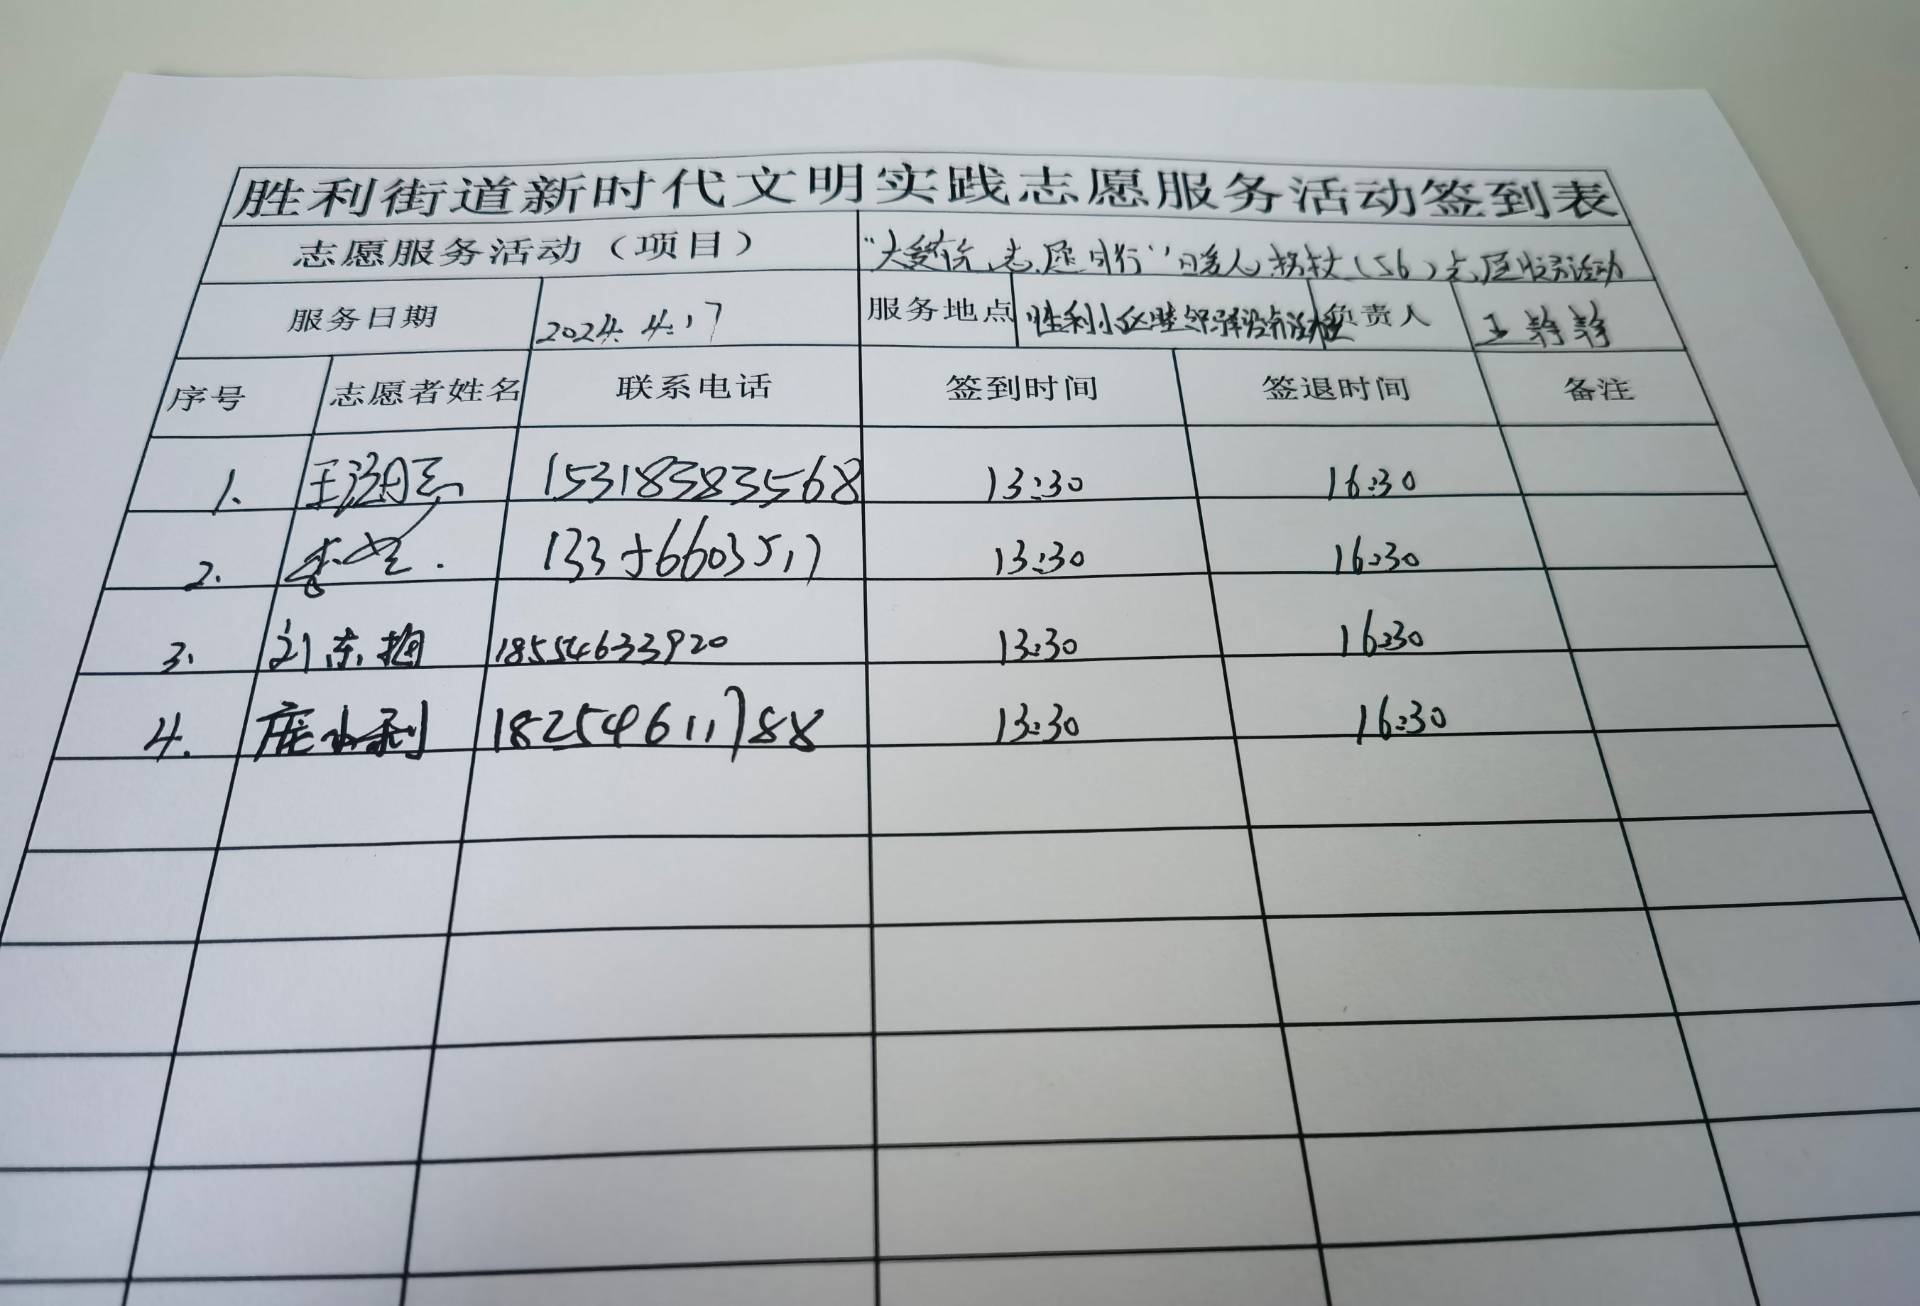 胜利街道新时代文明实践志愿服务活动签到表
志愿服务活动（项目） 志愿同行" 拐杖（56）志愿服务活动
服务日期 2024.4.17 服务地点 胜利小区 负责人 王静静
序号 志愿者姓名 联系电话 签到时间 签退时间 备注
1. 15318383568 13:30 16:30
2. 李 13356603517 13:30 16:30
3. 刘东梅 18554633920 13:30 16:30
4. 庞永利 18254611788 13:30 16:30